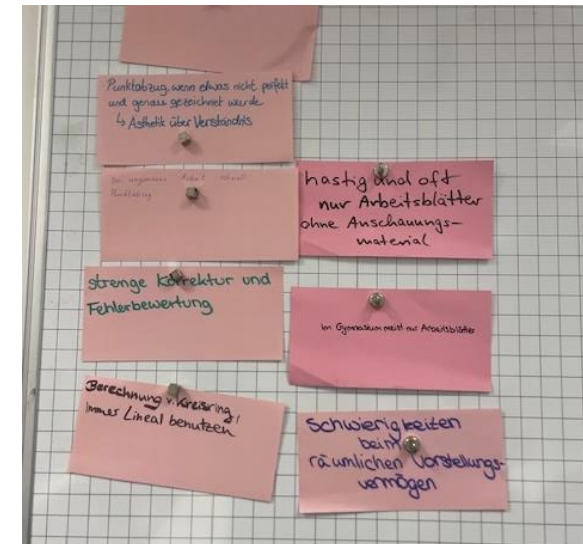 Punktabzug, wenn etwas nicht perfekt
und genau gezeichnet wurde
↳ Ästhetik über Verständnis
Bei ungenauer Arbeit schnell
Punktabzug
strenge Korrektur und
Fehlerbewertung
Berechnung v. Kreisring,
immer Lineal benutzen
hastig und oft
nur Arbeitsblätter
ohne Anschauungs-
material
Im Gymnasium meist nur Arbeitsblätter
Schwierigkeiten
beim
räumlichen Vorstellungs-
vermögen